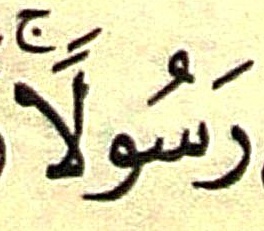 رَسُولًاۚ